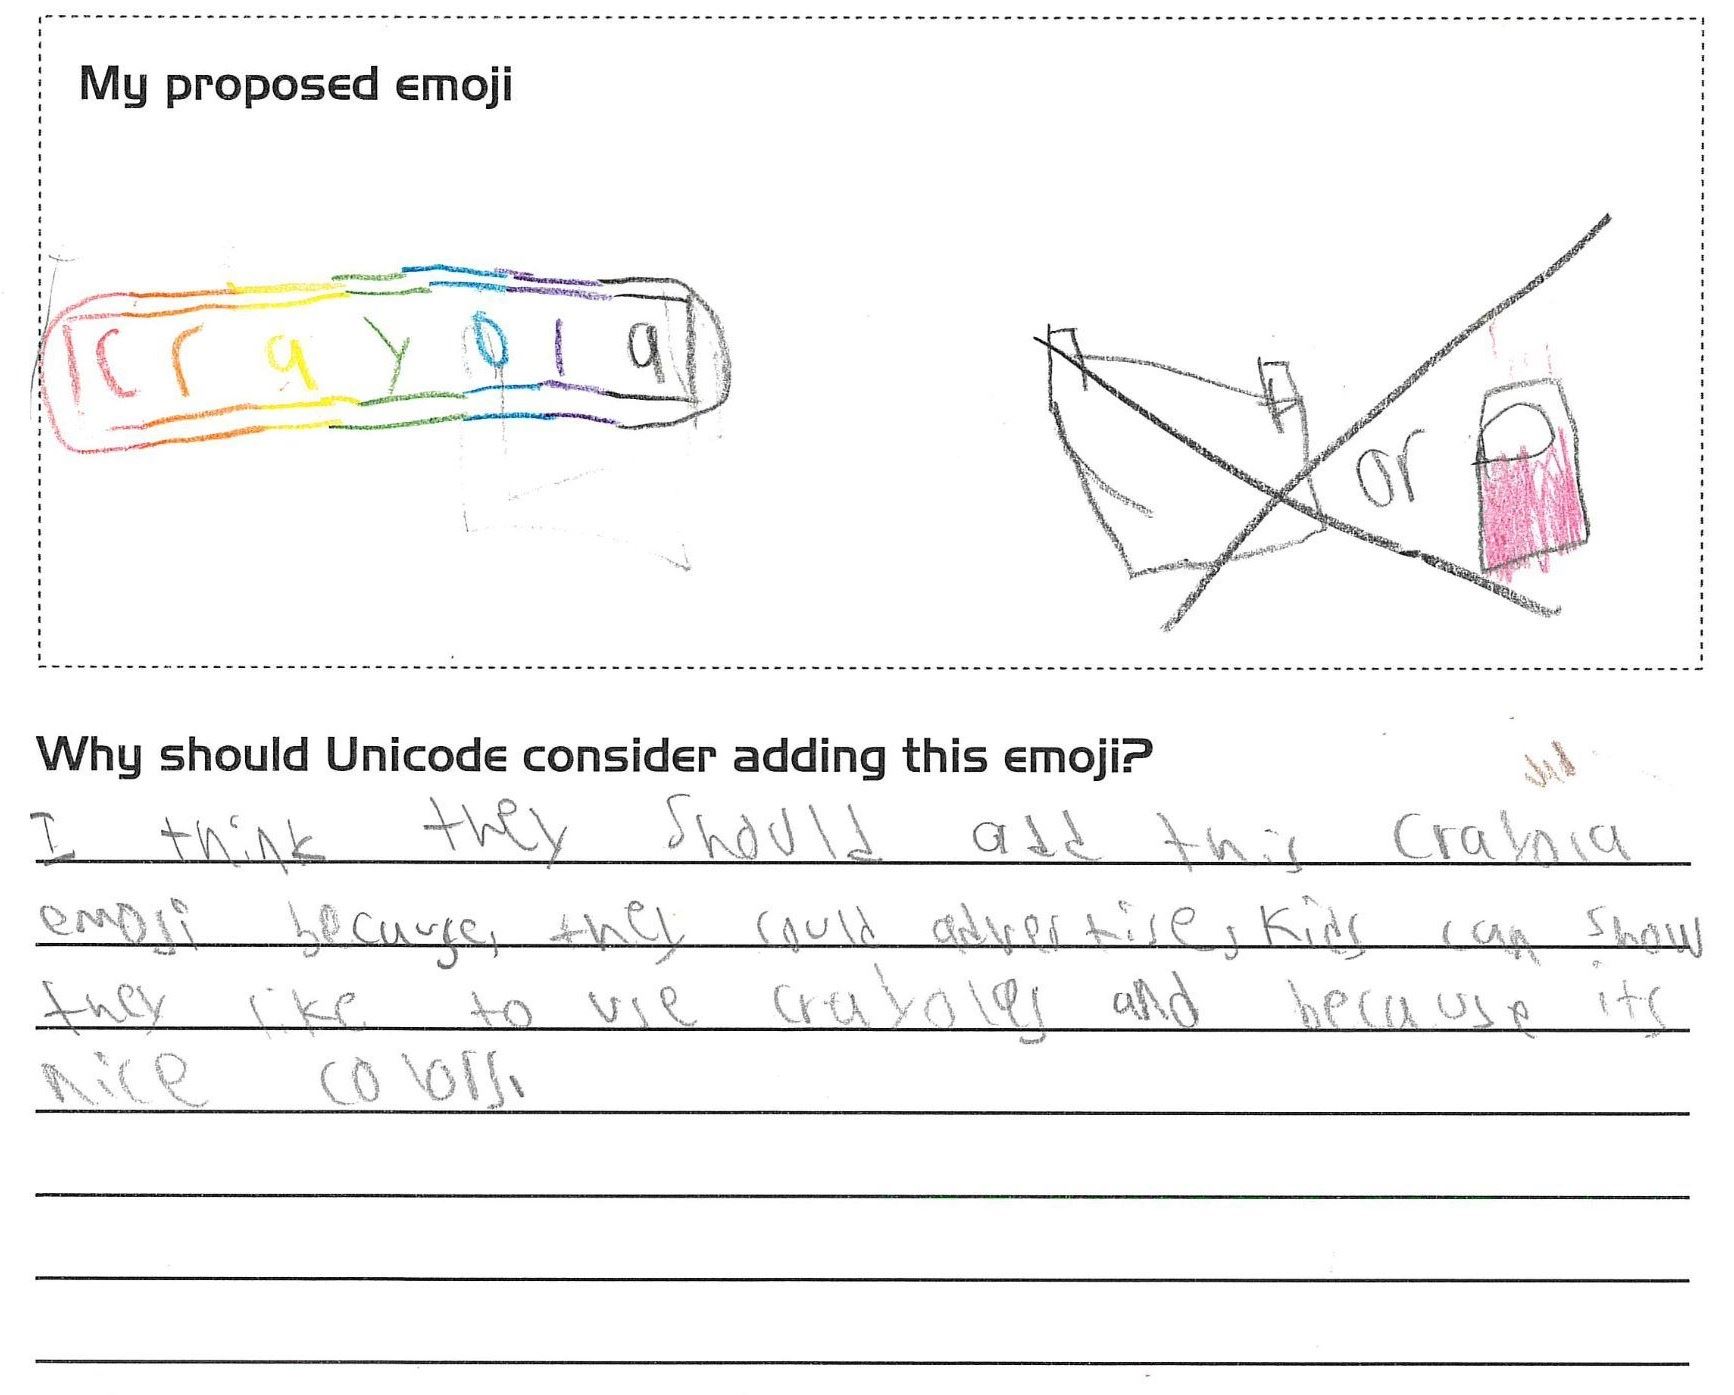 My proposed emoji
crayola
or
Why should Unicode consider adding this emoji?
I think they should add this crayola
emoji because, they could advertise, Kids can show
they like to use crayolas and because its
nice colors.